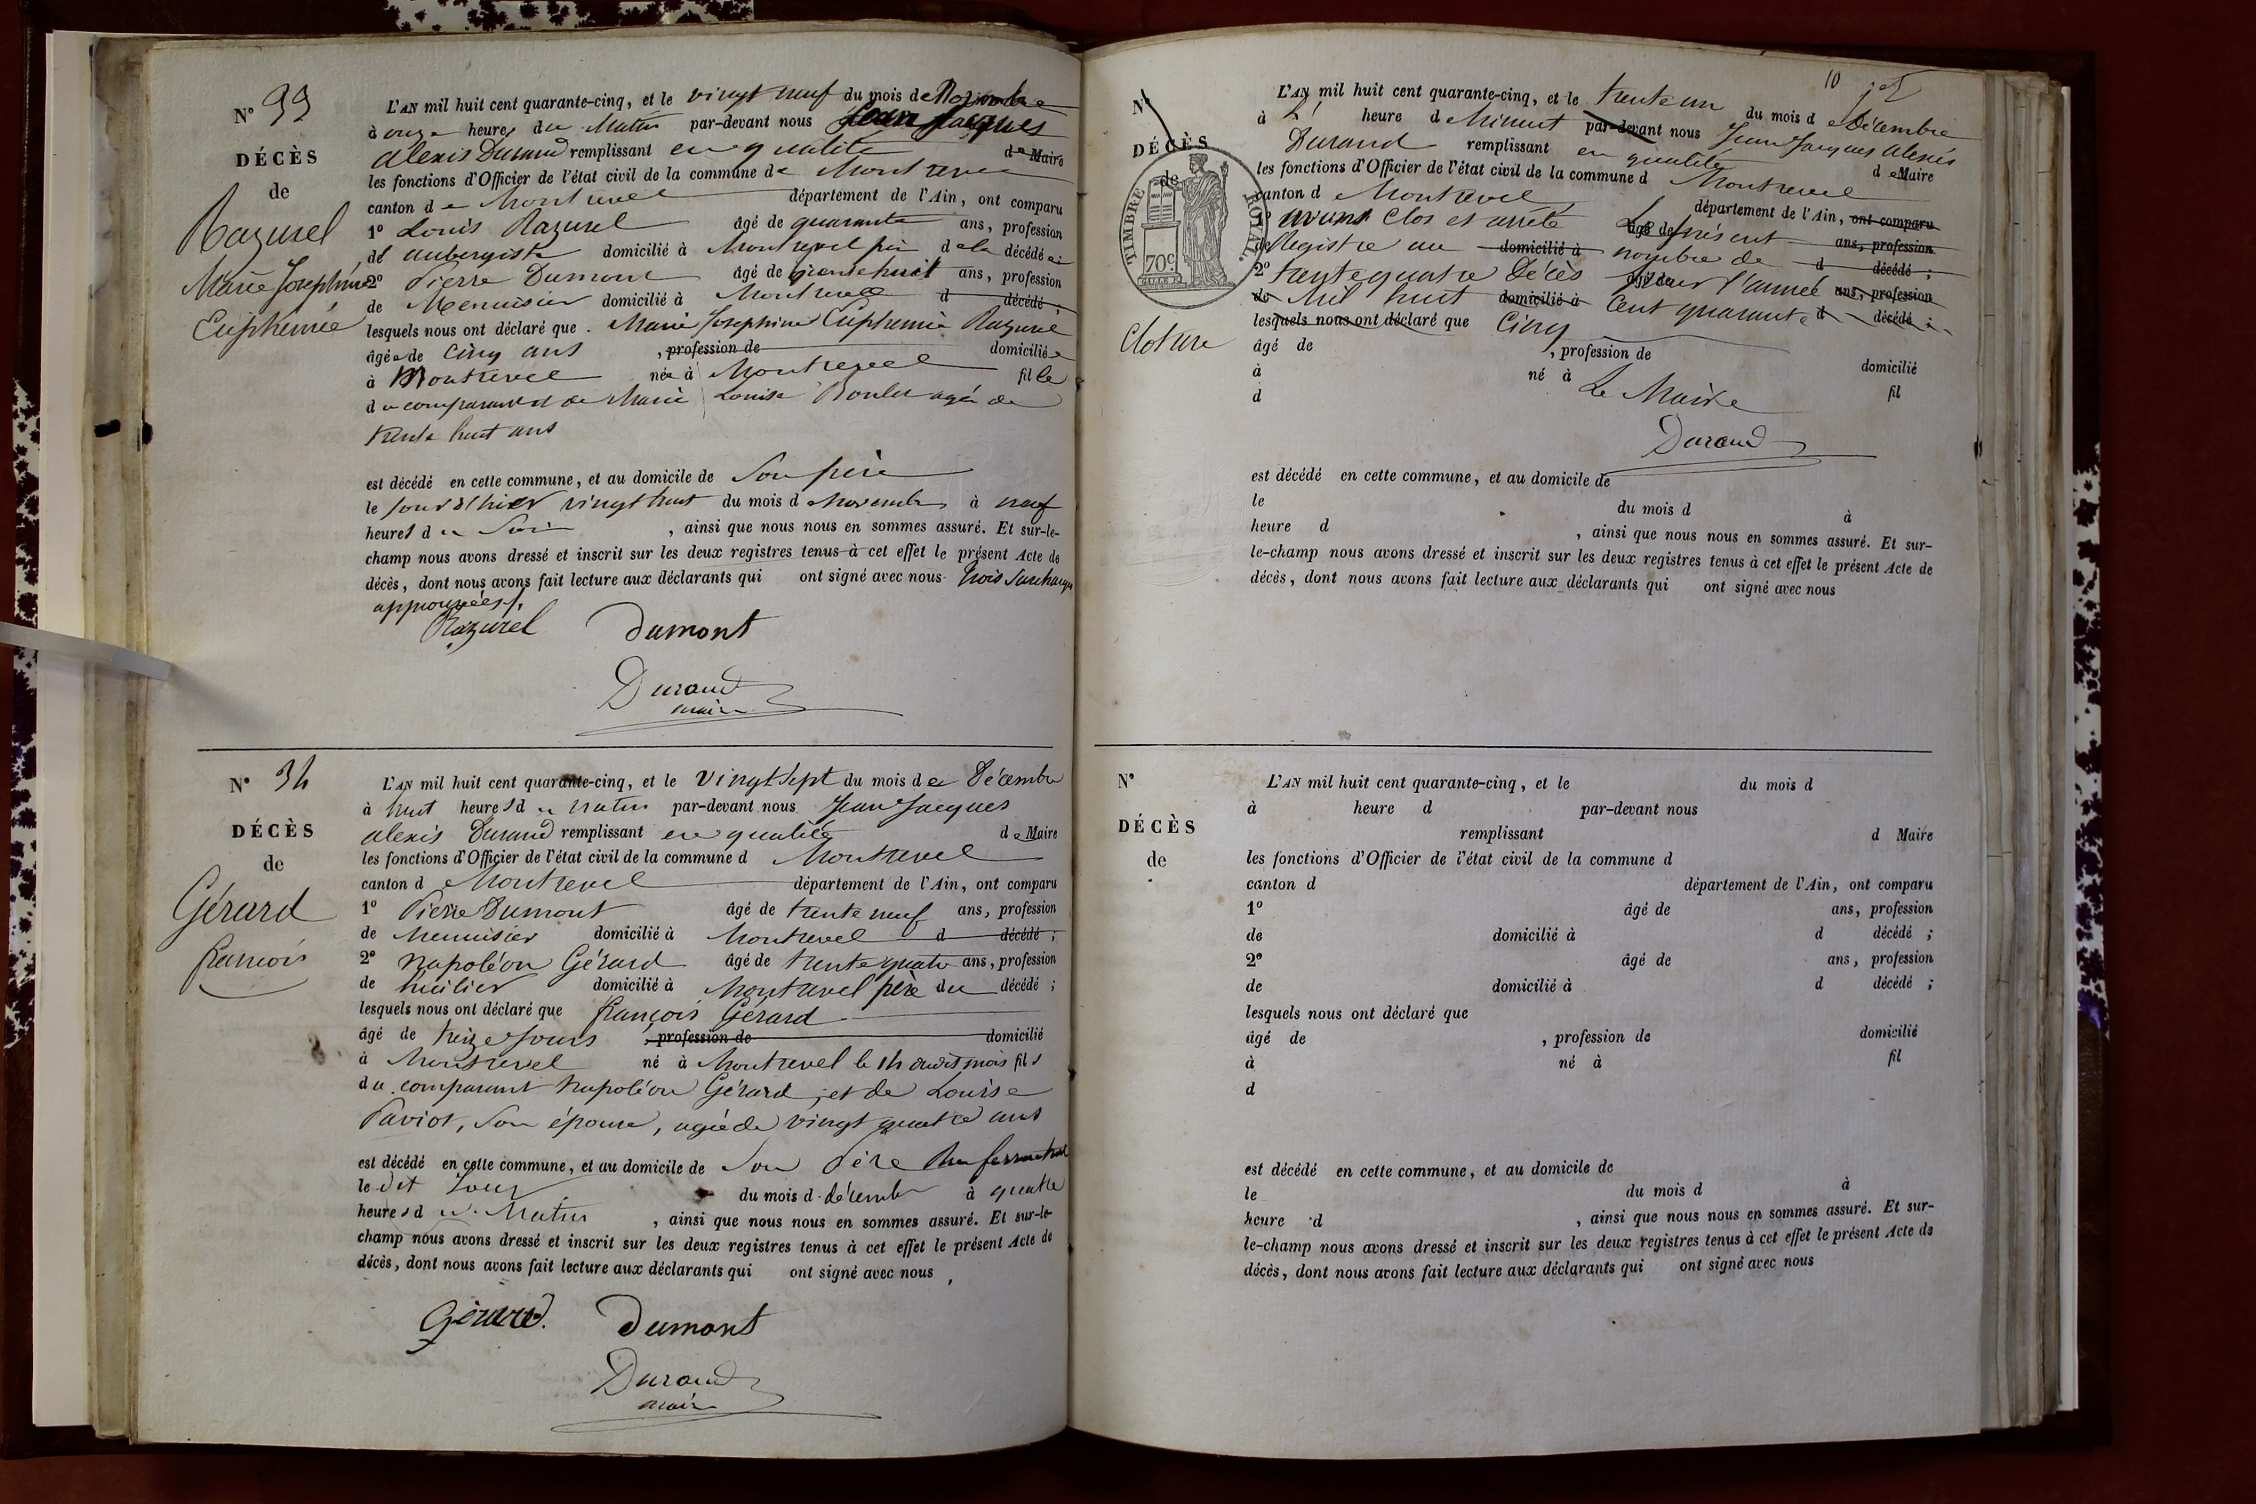 N° 33
DÉCÈS
de
Razurel
Marie Joséphine
Euphémie
L'AN mil huit cent quarante-cinq, et le vingt neuf du mois de Novembre
à onze heures du Matin par-devant nous Jean Jacques
Alexis Durand remplissant en qualité de Maire
les fonctions d'Officier de l'état civil de la commune de Montrevel
canton de Montrevel département de l'Ain, ont comparu
1° Louis Razurel âgé de quarante ans, profession
de aubergiste domicilié à Montrevel père de la décédée
2° Pierre Dumont âgé de trente huit ans, profession
de Menuisier domicilié à Montrevel d décédé ;
lesquels nous ont déclaré que Marie Josephine Euphemie Razurel
âgée de cinq ans , profession de domiciliée
à Montrevel née à Montrevel fille
du comparant et de Marie Louise Roulet agée de
trente huit ans
est décédé en cette commune, et au domicile de son père
le jour d'hier vingt huit du mois d Novembre à neuf
heures du Soir , ainsi que nous nous en sommes assuré. Et sur-le-
champ nous avons dressé et inscrit sur les deux registres tenus à cet effet le présent Acte de
décès, dont nous avons fait lecture aux déclarants qui ont signé avec nous trois surcharges
approuvées.
Razurel Dumont
Durand
maire
N° 34
DÉCÈS
de
Gérard
françois
L'AN mil huit cent quarante-cinq, et le vingt sept du mois de Décembre
à huit heures du matin par-devant nous Jean Jacques
alexis Durand remplissant en qualité de Maire
les fonctions d'Officier de l'état civil de la commune d Montrevel
canton d Montrevel département de l'Ain, ont comparu
1° Pierre Dumont âgé de trente neuf ans, profession
de Menuisier domicilié à Montrevel d décédé ;
2° Napoléon Gérard âgé de trente quatre ans, profession
de huilier domicilié à Montrevel père du décédé ;
lesquels nous ont déclaré que françois Gérard
âgé de treize jours , profession de domicilié
à Montrevel né à Montrevel le 14 dudit mois fils
du comparant Napoléon Gérard, et de Louise
Paviot, son épouse, agée de vingt quatre ans
est décédé en cette commune, et au domicile de son Père
le dit Jour du mois d décembre à quatre
heures du Matin , ainsi que nous nous en sommes assuré. Et sur-le-
champ nous avons dressé et inscrit sur les deux registres tenus à cet effet le présent Acte de
décès, dont nous avons fait lecture aux déclarants qui ont signé avec nous
Gérard. Dumont
Durand
maire
10
N°
DÉCÈS
de
TIMBRE ROYAL.
70 c.
Cloture
L'AN mil huit cent quarante-cinq, et le trente un du mois d Décembre
à heure de Minuit par-devant nous Jean Jacques Alexis
Durand remplissant en qualité de Maire
les fonctions d'Officier de l'état civil de la commune d Montrevel
canton d Montrevel département de l'Ain, ont comparu
1° avons Clos et arrêté Le présent âgé de ans, profession
de Registre au domicilié à nombre de d décédé ;
2° trente quatre Décès pour l'année âgé de ans, profession
de Mil huit domicilié à Cent quarante d décédé ;
lesquels nous ont déclaré que Cinq
âgé de , profession de domicilié
à né à fil
d
Le Maire
Durand
est décédé en cette commune, et au domicile de
le du mois d à
heure d , ainsi que nous nous en sommes assuré. Et sur-
le-champ nous avons dressé et inscrit sur les deux registres tenus à cet effet le présent Acte de
décès, dont nous avons fait lecture aux déclarants qui ont signé avec nous
N°
DÉCÈS
de
L'AN mil huit cent quarante-cinq, et le du mois d
à heure d par-devant nous
remplissant d Maire
les fonctions d'Officier de l'état civil de la commune d
canton d département de l'Ain, ont comparu
1° âgé de ans, profession
de domicilié à d décédé ;
2° âgé de ans, profession
de domicilié à d décédé ;
lesquels nous ont déclaré que
âgé de , profession de domicilié
à né à fil
d
est décédé en cette commune, et au domicile de
le du mois d à
heure d , ainsi que nous nous en sommes assuré. Et sur-
le-champ nous avons dressé et inscrit sur les deux registres tenus à cet effet le présent Acte de
décès, dont nous avons fait lecture aux déclarants qui ont signé avec nous